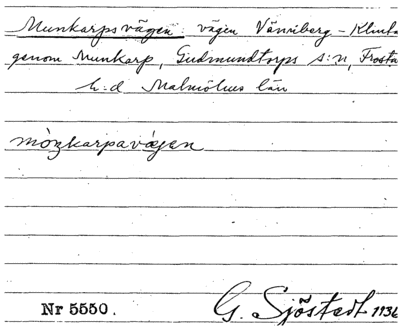 Munkarpsvägen vägen Vänriberg - Klinta
genom Munkarp, Gudmundtorps s:n, Frosta
h:d Malmöhus län
mòŋkarpavägen
Nr 5550.
G. Sjöstedt 1936